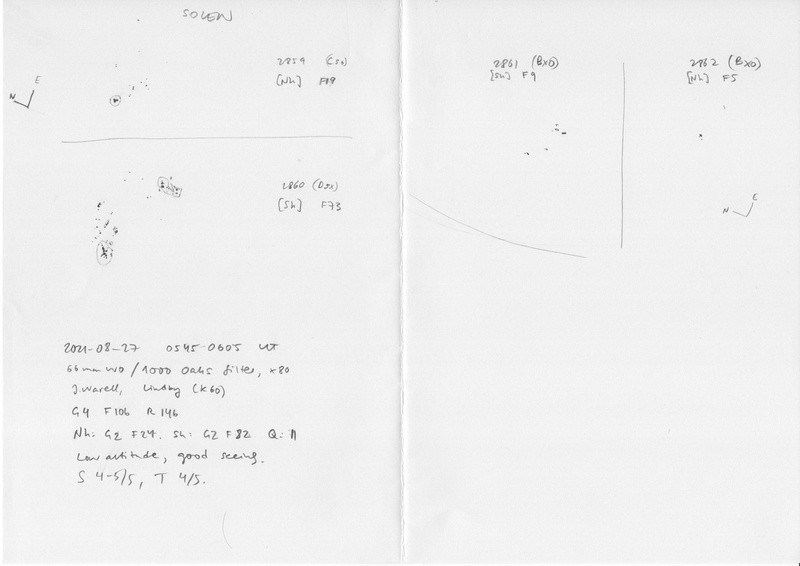 SOLEN
2859 (Cso)
[Nh] F18
E
N
2860 (Dsx)
[Sh] F73
2021-08-27 0545-0605 UT
66mm WO / 1000 Oaks filter, x20
J. Warell, Lindby (K60)
G4 F106 R146
Nh: G2 F24. Sh: G2 F82 Q:
Low altitude, good seeing.
S 4-5/5, T 4/5.
2861 (BXO)
[Sh] F9
2862 (BXO)
[Nh] F5
E
N